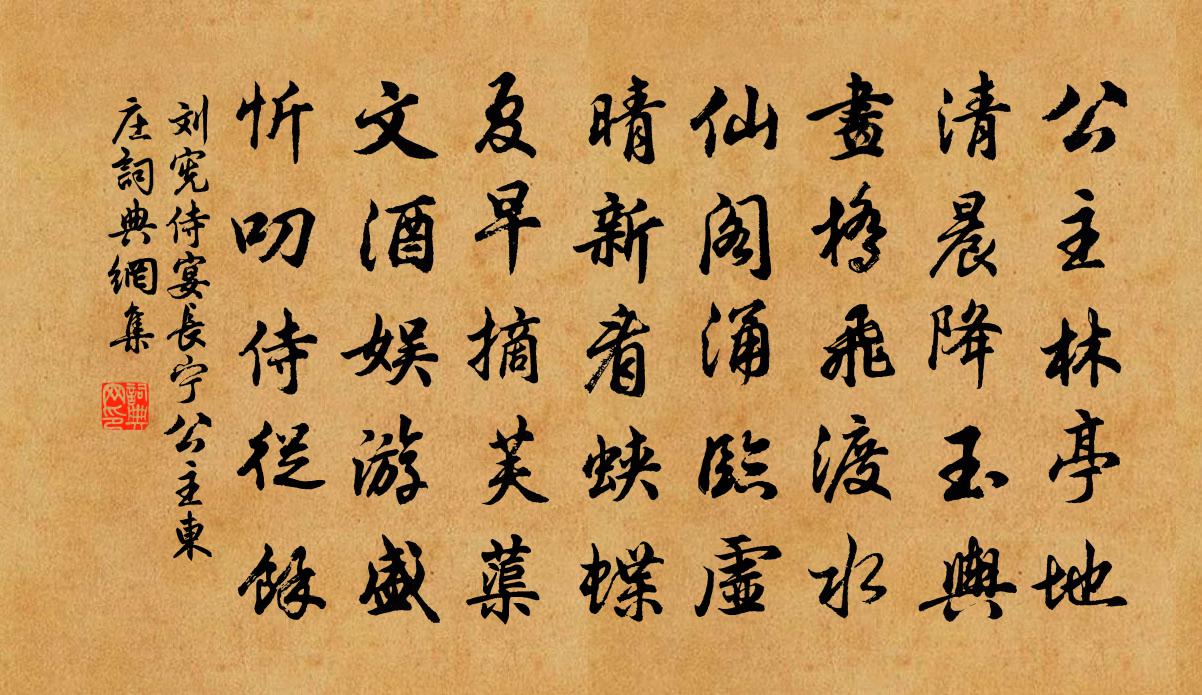 公主林亭地
清晨降玉輿
畫橋飛渡水
仙閣涌臨虛
晴新看蛺蝶
夏早摘芙蕖
文酒娛游盛
忻叨侍從餘
刘宪侍宴長宁公主東
庄詞典網集
詞典
网印